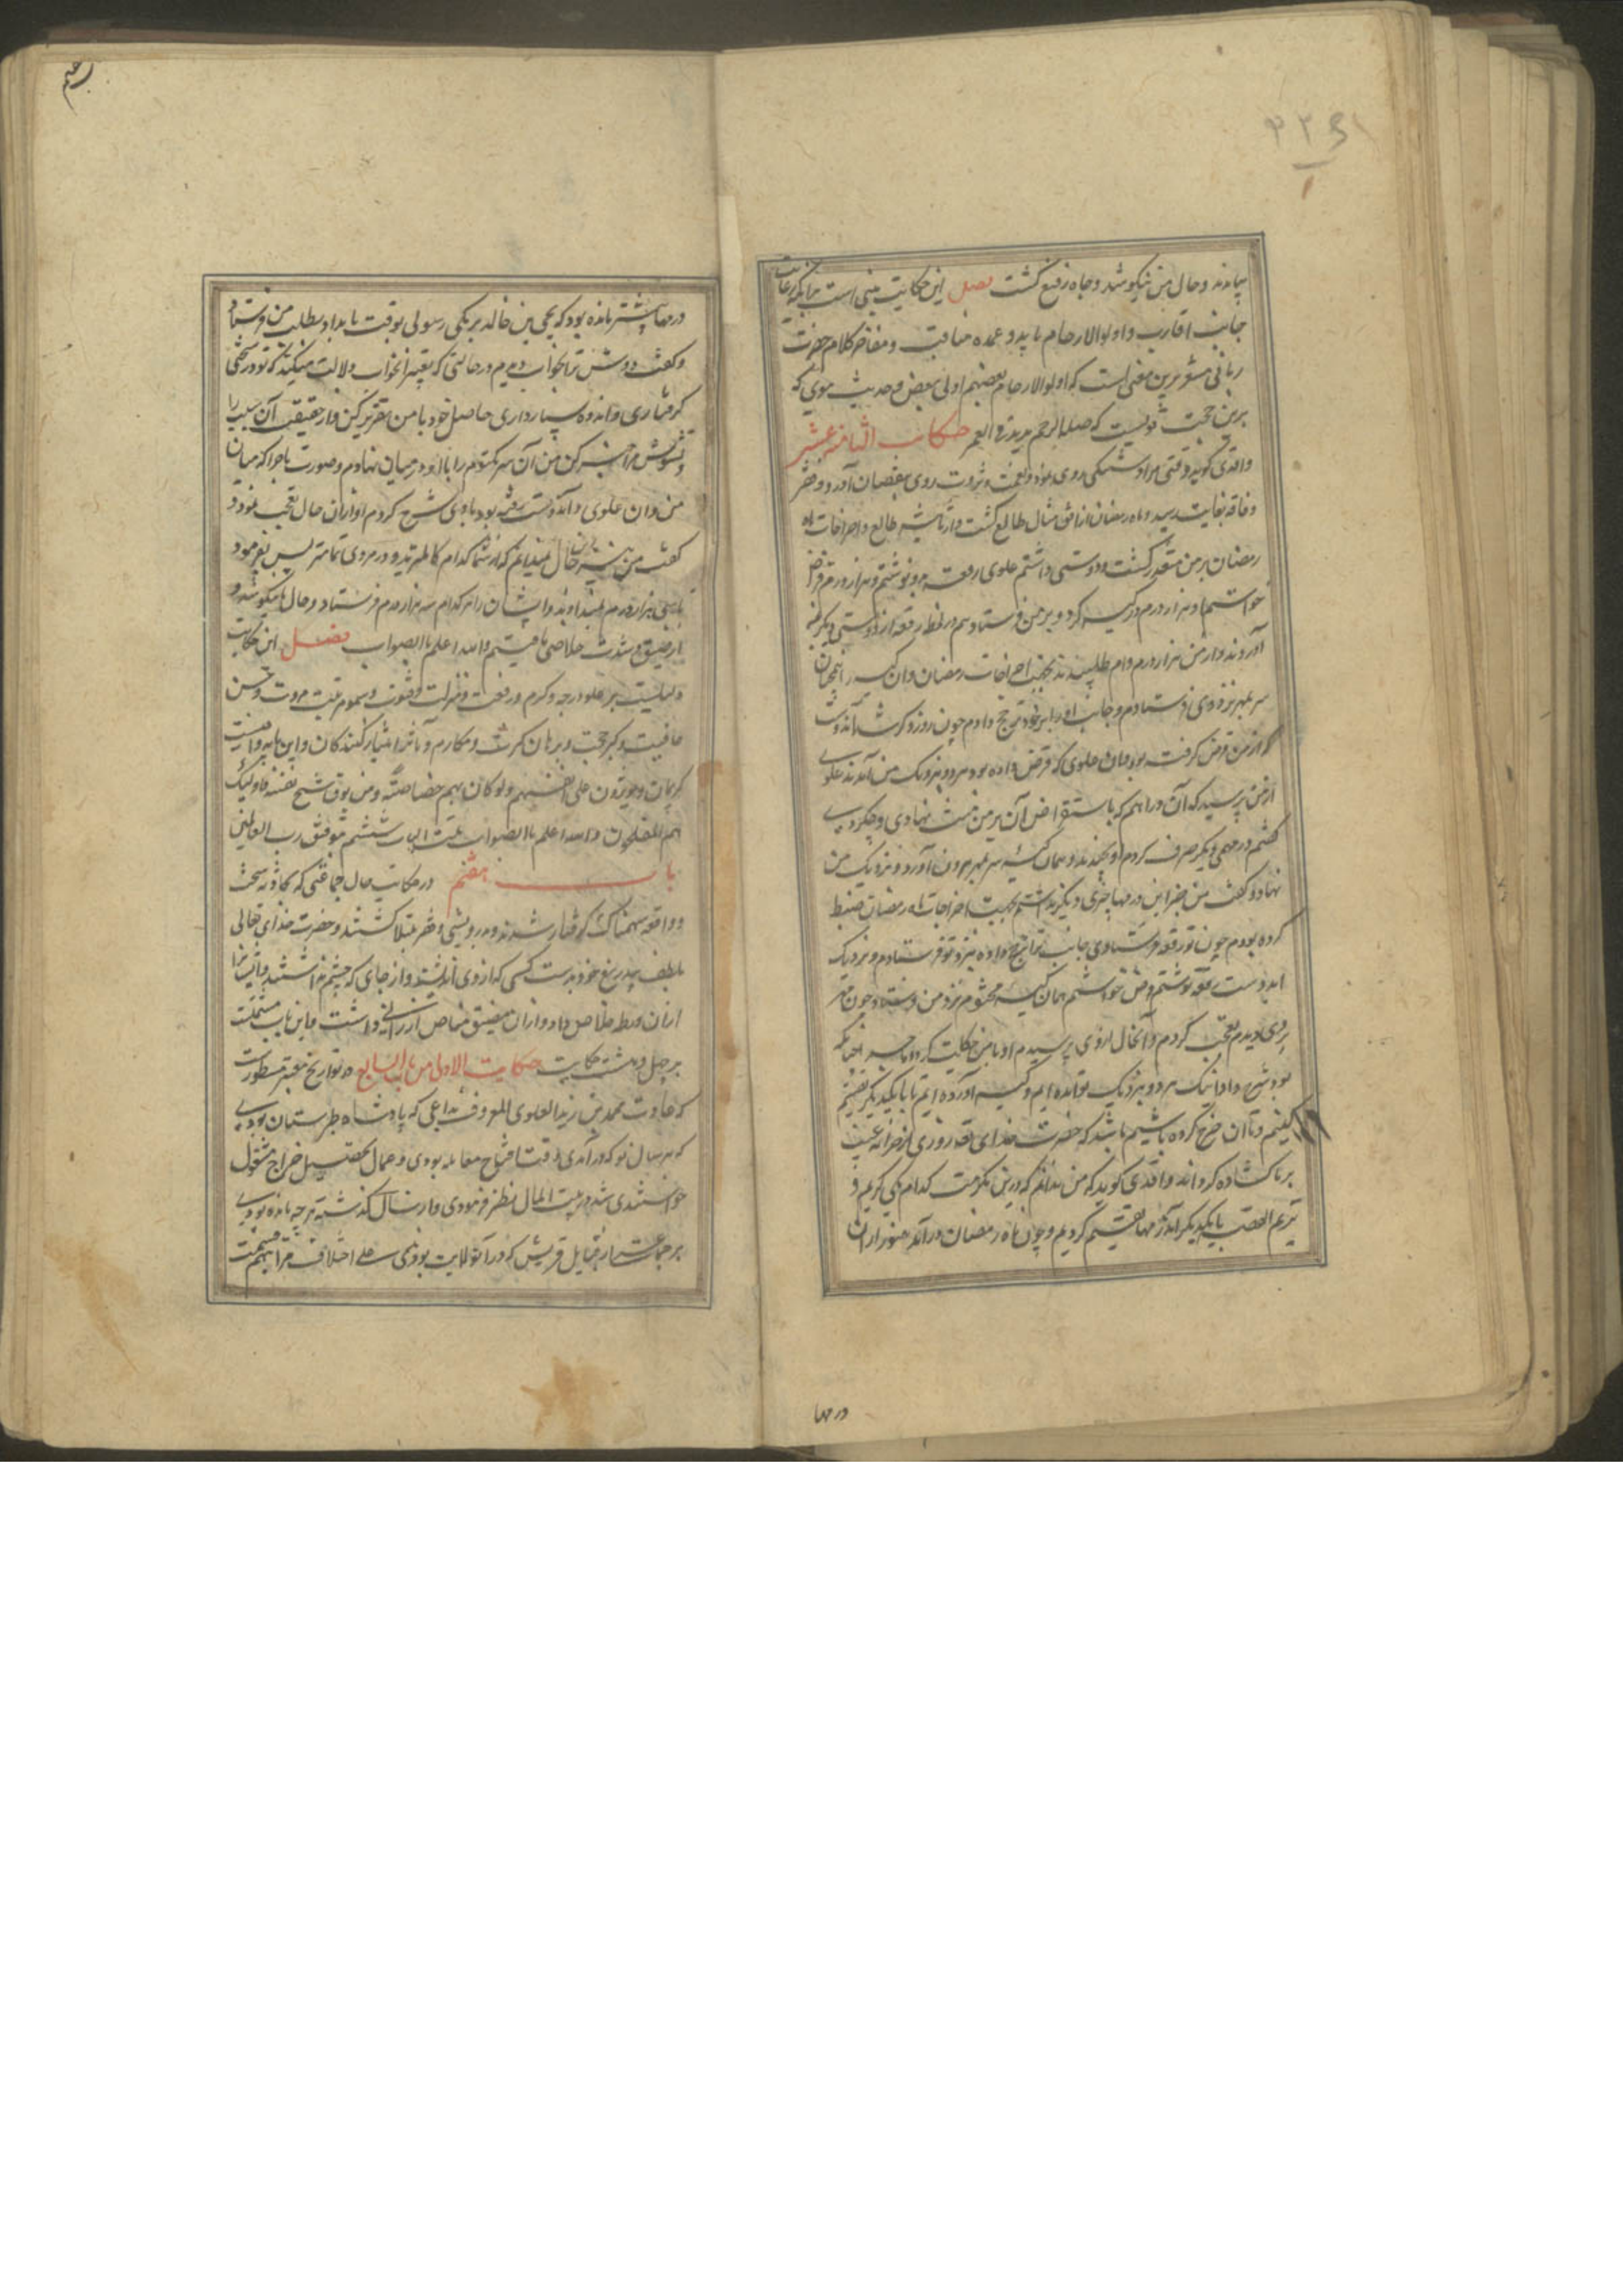 بیامدند و حال من نیکو شد و جاه رفیع گشت فصل این حکایت مبنی است بر آنکه رعایت
جانب اقارب و اولوالارحام باید و عمده مناقب و مفاخر کلام حضرت
ربانی مشعر برین معنی است که اولوالارحام بعضهم اولی ببعض و حدیث نبوی که
برین حجت قویست که صلة الرحم یزید فی العمر حکایت الثامنه عشر
واقدی گوید وقتی مرا دستتنگی روی نمود و نعمت و ثروت روی بنقصان آورد و فقر
و فاقه بغایت رسید و ماه رمضان از افق مثال طالع گشت و از تأثیر طالع و اخراجات ماه
رمضان بر من متعذر گشت و دوستی داشتم علوی رقعه بدو نوشتم و هزار درم قرض
خواستم او هزار درم در کیسه کرد و بر من فرستاد هم در لحظه رقعه از دوستی دیگر بمن
آوردند و از من هزار درم وام طلبیدند بجهت اخراجات رمضان و آن کیسه را همچنان
سر بمهر نزد وی فرستادم و جانب او را بر خود ترجیح دادم چون روز دیگر شد آن دوست
که از من قرض گرفته بود و آن علوی که قرض داده بود هر دو بنزدیک من آمدند علوی
از من پرسید که آن دراهم که باستقراض آن بر من منت نهادی چه کردی
گفتم در مهمی دیگر صرف کردم او بخندید و همان کیسه سر بمهر بیرون آورد و نزدیک من
نهاد و گفت من جز این درمها چیزی دیگر نداشتم بجهت اخراجات ماه رمضان ضبط
کرده بودم چون تو رقعه فرستادی جانب ترا ترجیح داده بنزد تو فرستادم و نزدیک
این دوست رقعه نوشتم و قرض خواستم همان کیسه مختوم نزد من فرستاد چون مهر
بر وی دیدم تعجب کردم و آن حال از وی پرسیدم او با من حکایت کرد و ماجرا چنانکه
بود شرح داد اینک هر دو بنزدیک تو آمده ایم و کیسه آورده ایم تا با یکدیگر تقسیم
کنیم و تا آن خرج کرده باشیم باشد که حضرت خدای تعالی روزی از خزانه غیب
بر ما گشاده گرداند واقدی گوید که من ندانم که درین مکرمت کدام یکی کریم و
تریم القصه با یکدیگر آن درمها تقسیم کردیم و چون ماه رمضان درآمد هنوز از آن
درمها
درمها بیشتر مانده بود که یحیی بن خالد برمکی رسولی بوقت بامداد بطلب من فرستاد
و گفت دوش ترا بخواب دیدم در حالتی که تعبیر آن خواب دلالت میکند که تو در سختی
گرفتاری و اندوه بسیار داری حاصل خود با من تقریر کن و از حقیقت آن سبب را
و تشویش مرا خبر کن من آن سر مکتوم را با او در میان نهادم و صورت ماجرا که میان
من و آن علوی و آن دوست رفته بود با وی شرح کردم او از آن حال تعجب نمود و
گفت من نیز درین حال نمیدانم که از شما کدام کاملترید و در مروی تمامتر پس بفرمود
تا سی هزار درم بمن دادند و ایشان را هر کدام سه هزار درم فرستاد و حال ما نیکو شد و
از ضیق و شدت خلاصی یافتیم والله اعلم بالصواب فصل این حکایت
دلیلیست بر علو درجه کرم و رفعت و منزلت فتوت و سمو مرتبت مروت و حسن
عاقبت و کبر حجت و برهان کرمت و مکارم و مآثر ایثار کنندگان و این مایه و امنیت
کریمان و یؤثرون علی انفسهم ولو کان بهم خصاصة و من یوق شح نفسه فاولئک
هم المفلحون والله اعلم بالصواب تمت الباب ششم بتوفیق رب العالمین
باب هفتم در حکایت حال جماعتی که بحادثه سخت
و واقعه سهمناک گرفتار شدند و بدرویشی و فقر مبتلا گشتند و حضرت خدای تعالی
بلطف بیدریغ خود بدست کسی که از وی اندیشند و از جای که چشم نداشتند ایشانرا
از آن ورطه خلاص داد و از آن مضیق مناص ارزانی داشت و این باب مشتملست
بر چهل و هشت حکایت حکایت الاولی من باب السابع در تواریخ معتبر مسطورست
که عادت محمد بن زید العلوی المعروف بداعی که پادشاه طبرستان بودی
که هر سال نو که درآمدی وقت افتتاح معامله بودی و عمال بتحصیل خراج مشغول
خواستندی شد در بیت المال نظر فرمودی و از سال گذشته هر چه مانده بودی
بر جماعت از قبایل قریش که در آن ولایت بودندی علی اختلاف مراتبهم قسمت